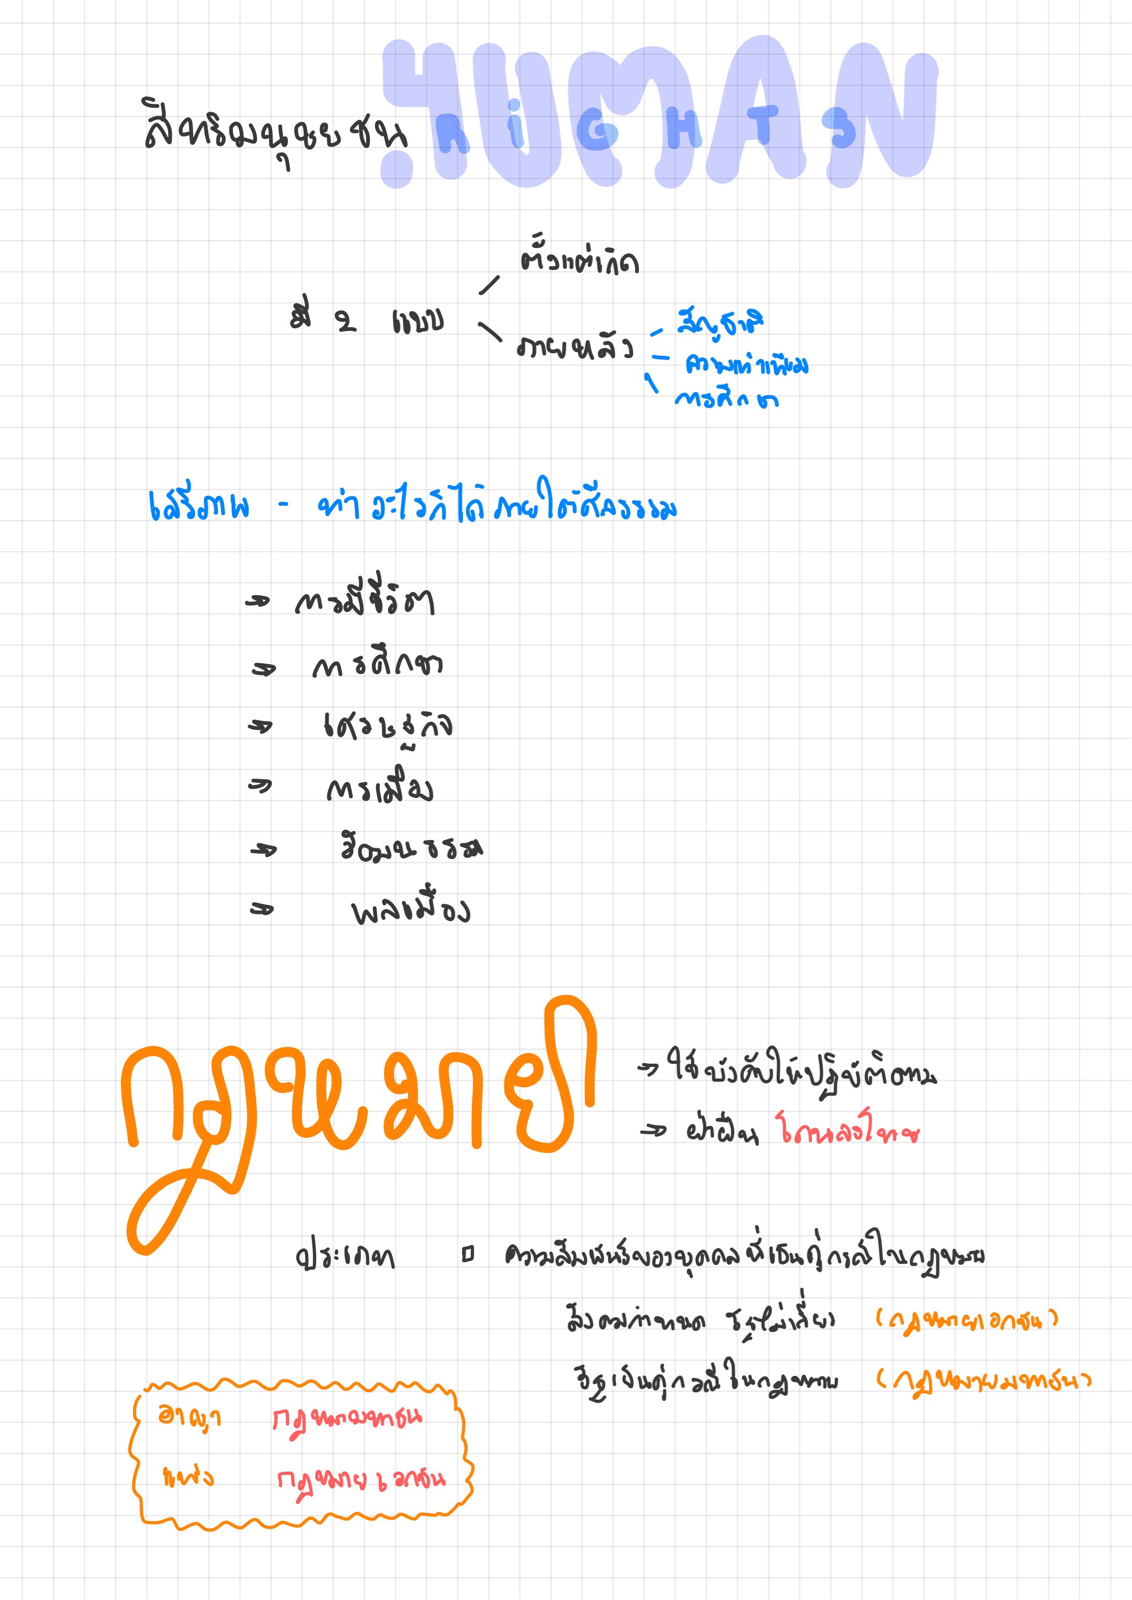 HUMAN
สิทธิมนุษยชน RiGHTS
ตั้งแต่เกิด
มี 2 แบบ
ภายหลัง
สัญชาติ
ความเท่าเทียม
การศึกษา
เสรีภาพ - ทำอะไรก็ได้ภายใต้ศีลธรรม
→ การมีชีวิต
→ การศึกษา
→ เศรษฐกิจ
→ การเมือง
→ วัฒนธรรม
→ พลเมือง
กฎหมาย
→ ใช้บังคับให้ปฏิบัติตาม
→ ฝ่าฝืน โดนลงโทษ
ประเภท ความสัมพันธ์ของบุคคลที่เป็นคู่กรณีในกฎหมาย
สังคมกำหนด รัฐไม่เกี่ยว (กฎหมายเอกชน)
รัฐเป็นคู่กรณีในกฎหมาย (กฎหมายมหาชน)
อาญา กฎหมายมหาชน
แพ่ง กฎหมายเอกชน